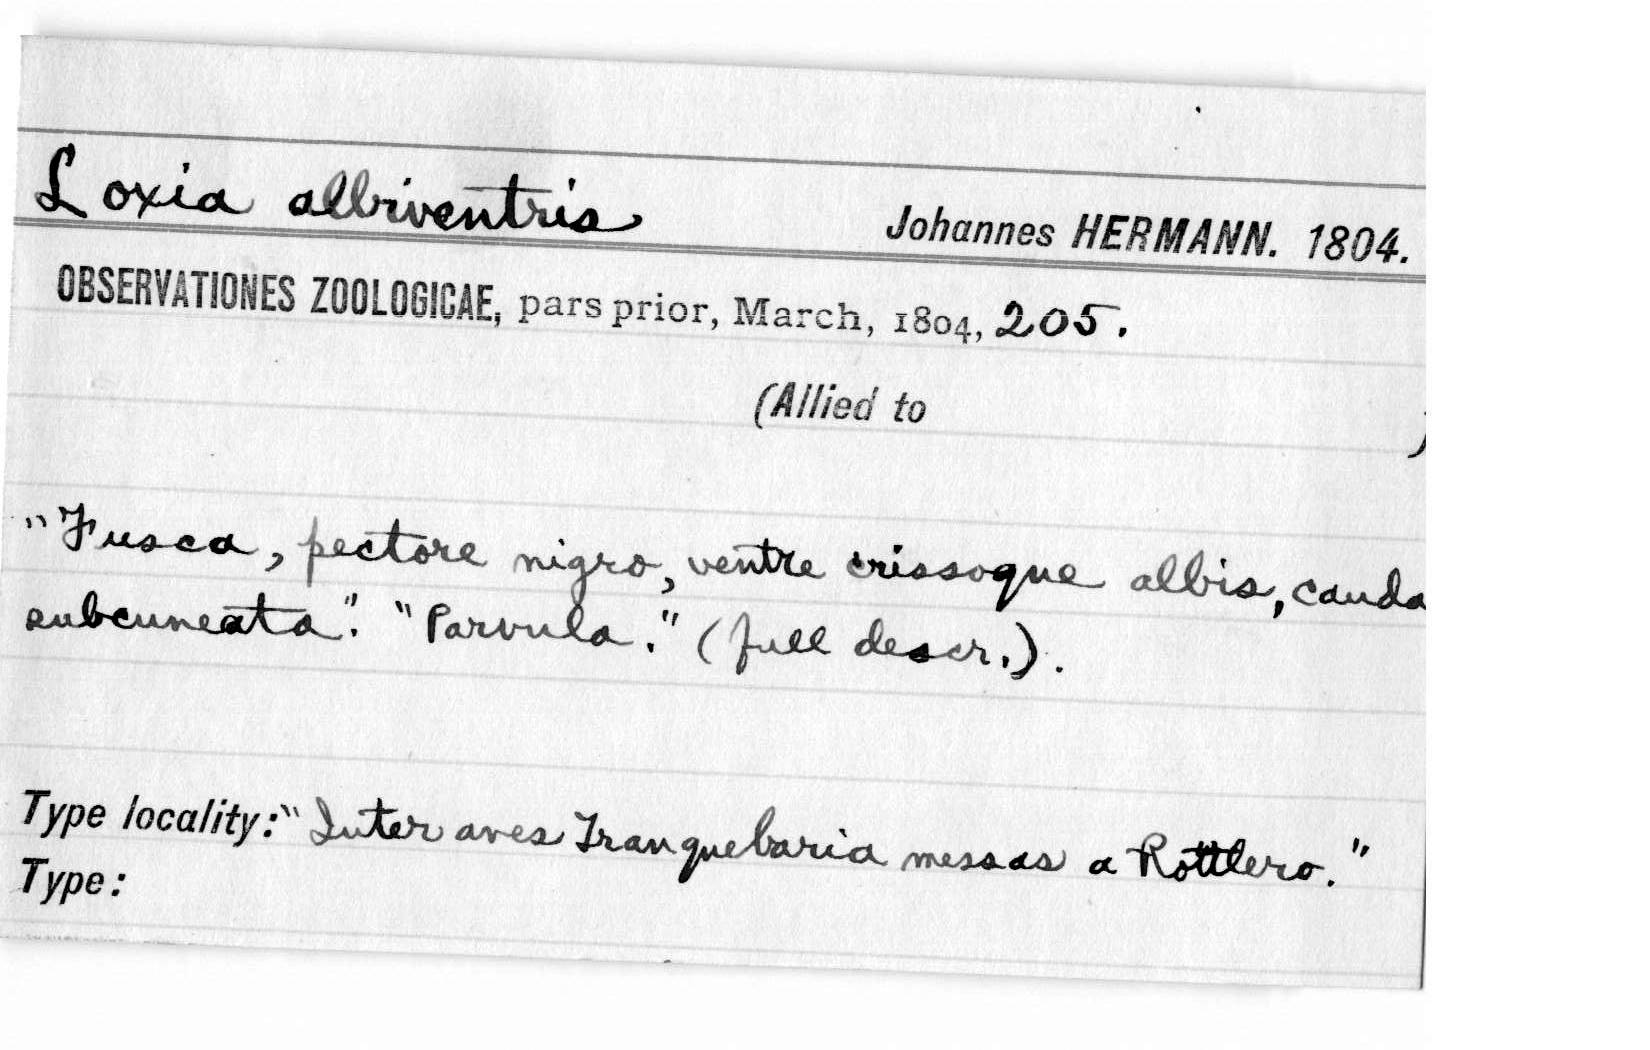 Loxia albiventris Johannes HERMANN. 1804.
OBSERVATIONES ZOOLOGICAE, pars prior, March, 1804, 205.
(Allied to )
"Fusca, pectore nigro, ventre crissoque albis, cauda
subcuneata". "Parvula." (full descr.).
Type locality: "Inter aves Tranquebaria messas a Rottlero."
Type: